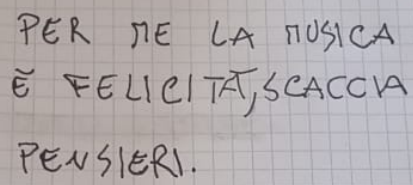 PER ME LA MUSICA
È FELICITÀ, SCACCIA
PENSIERI.